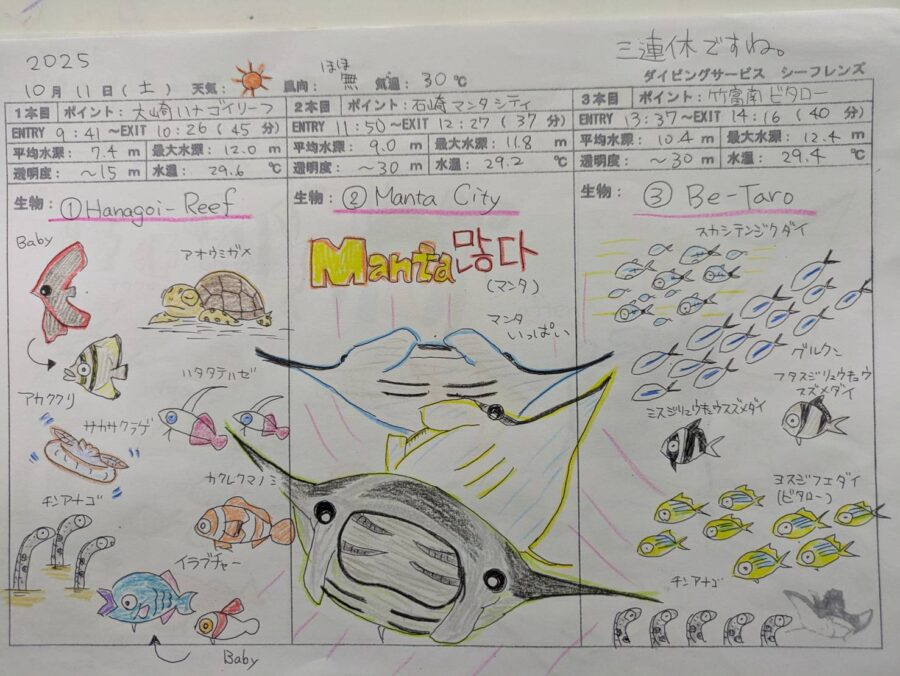 2025
三連休ですね。
10月 11日(土) 天気: 風向: ほぼ無 気温: 30℃
ダイビングサービス シーフレンズ
1本目 ポイント: 大崎ハナゴイリーフ
ENTRY 9:41〜EXIT 10:26 (45分)
平均水深: 7.4 m 最大水深: 12.0 m
透明度: 〜15 m 水温: 29.6 ℃
生物: ①Hanagoi-Reef
Baby
アオウミガメ
アカククリ
ハタタテハゼ
サカサクラゲ
カクレクマノミ
チンアナゴ
イラブチャー
Baby
2本目 ポイント: 石崎マンタシティ
ENTRY 11:50〜EXIT 12:27 (37分)
平均水深: 9.0 m 最大水深: 11.8 m
透明度: 〜30 m 水温: 29.2 ℃
生物: ② Manta City
Manta많다
(マンタ)
マンタ
いっぱい
3本目 ポイント: 竹富南ビタロー
ENTRY 13:37〜EXIT 14:16 (40分)
平均水深: 10.4 m 最大水深: 12.4 m
透明度: 〜30 m 水温: 29.4 ℃
生物: ③ Be-Taro
スカシテンジクダイ
グルクン
フタスジリュウキュウ
スズメダイ
ミスジリュウキュウスズメダイ
ヨスジフエダイ
(ビタロー)
チンアナゴ